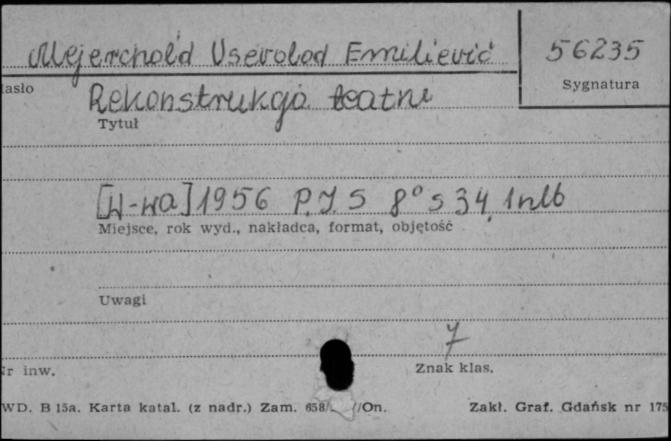 Mejerchol'd Vsevolod Emilievič 56235
asło Sygnatura
Rekonstrukcja teatru
Tytuł
[W-wa] 1956 P.I.S 8° s 34, 1 nlb
Miejsce, rok wyd., nakładca, format, objętość
Uwagi
7
Nr inw. Znak klas.
WD. B 15a. Karta katal. (z nadr.) Zam. 658/ /On. Zakł. Graf. Gdańsk nr 175